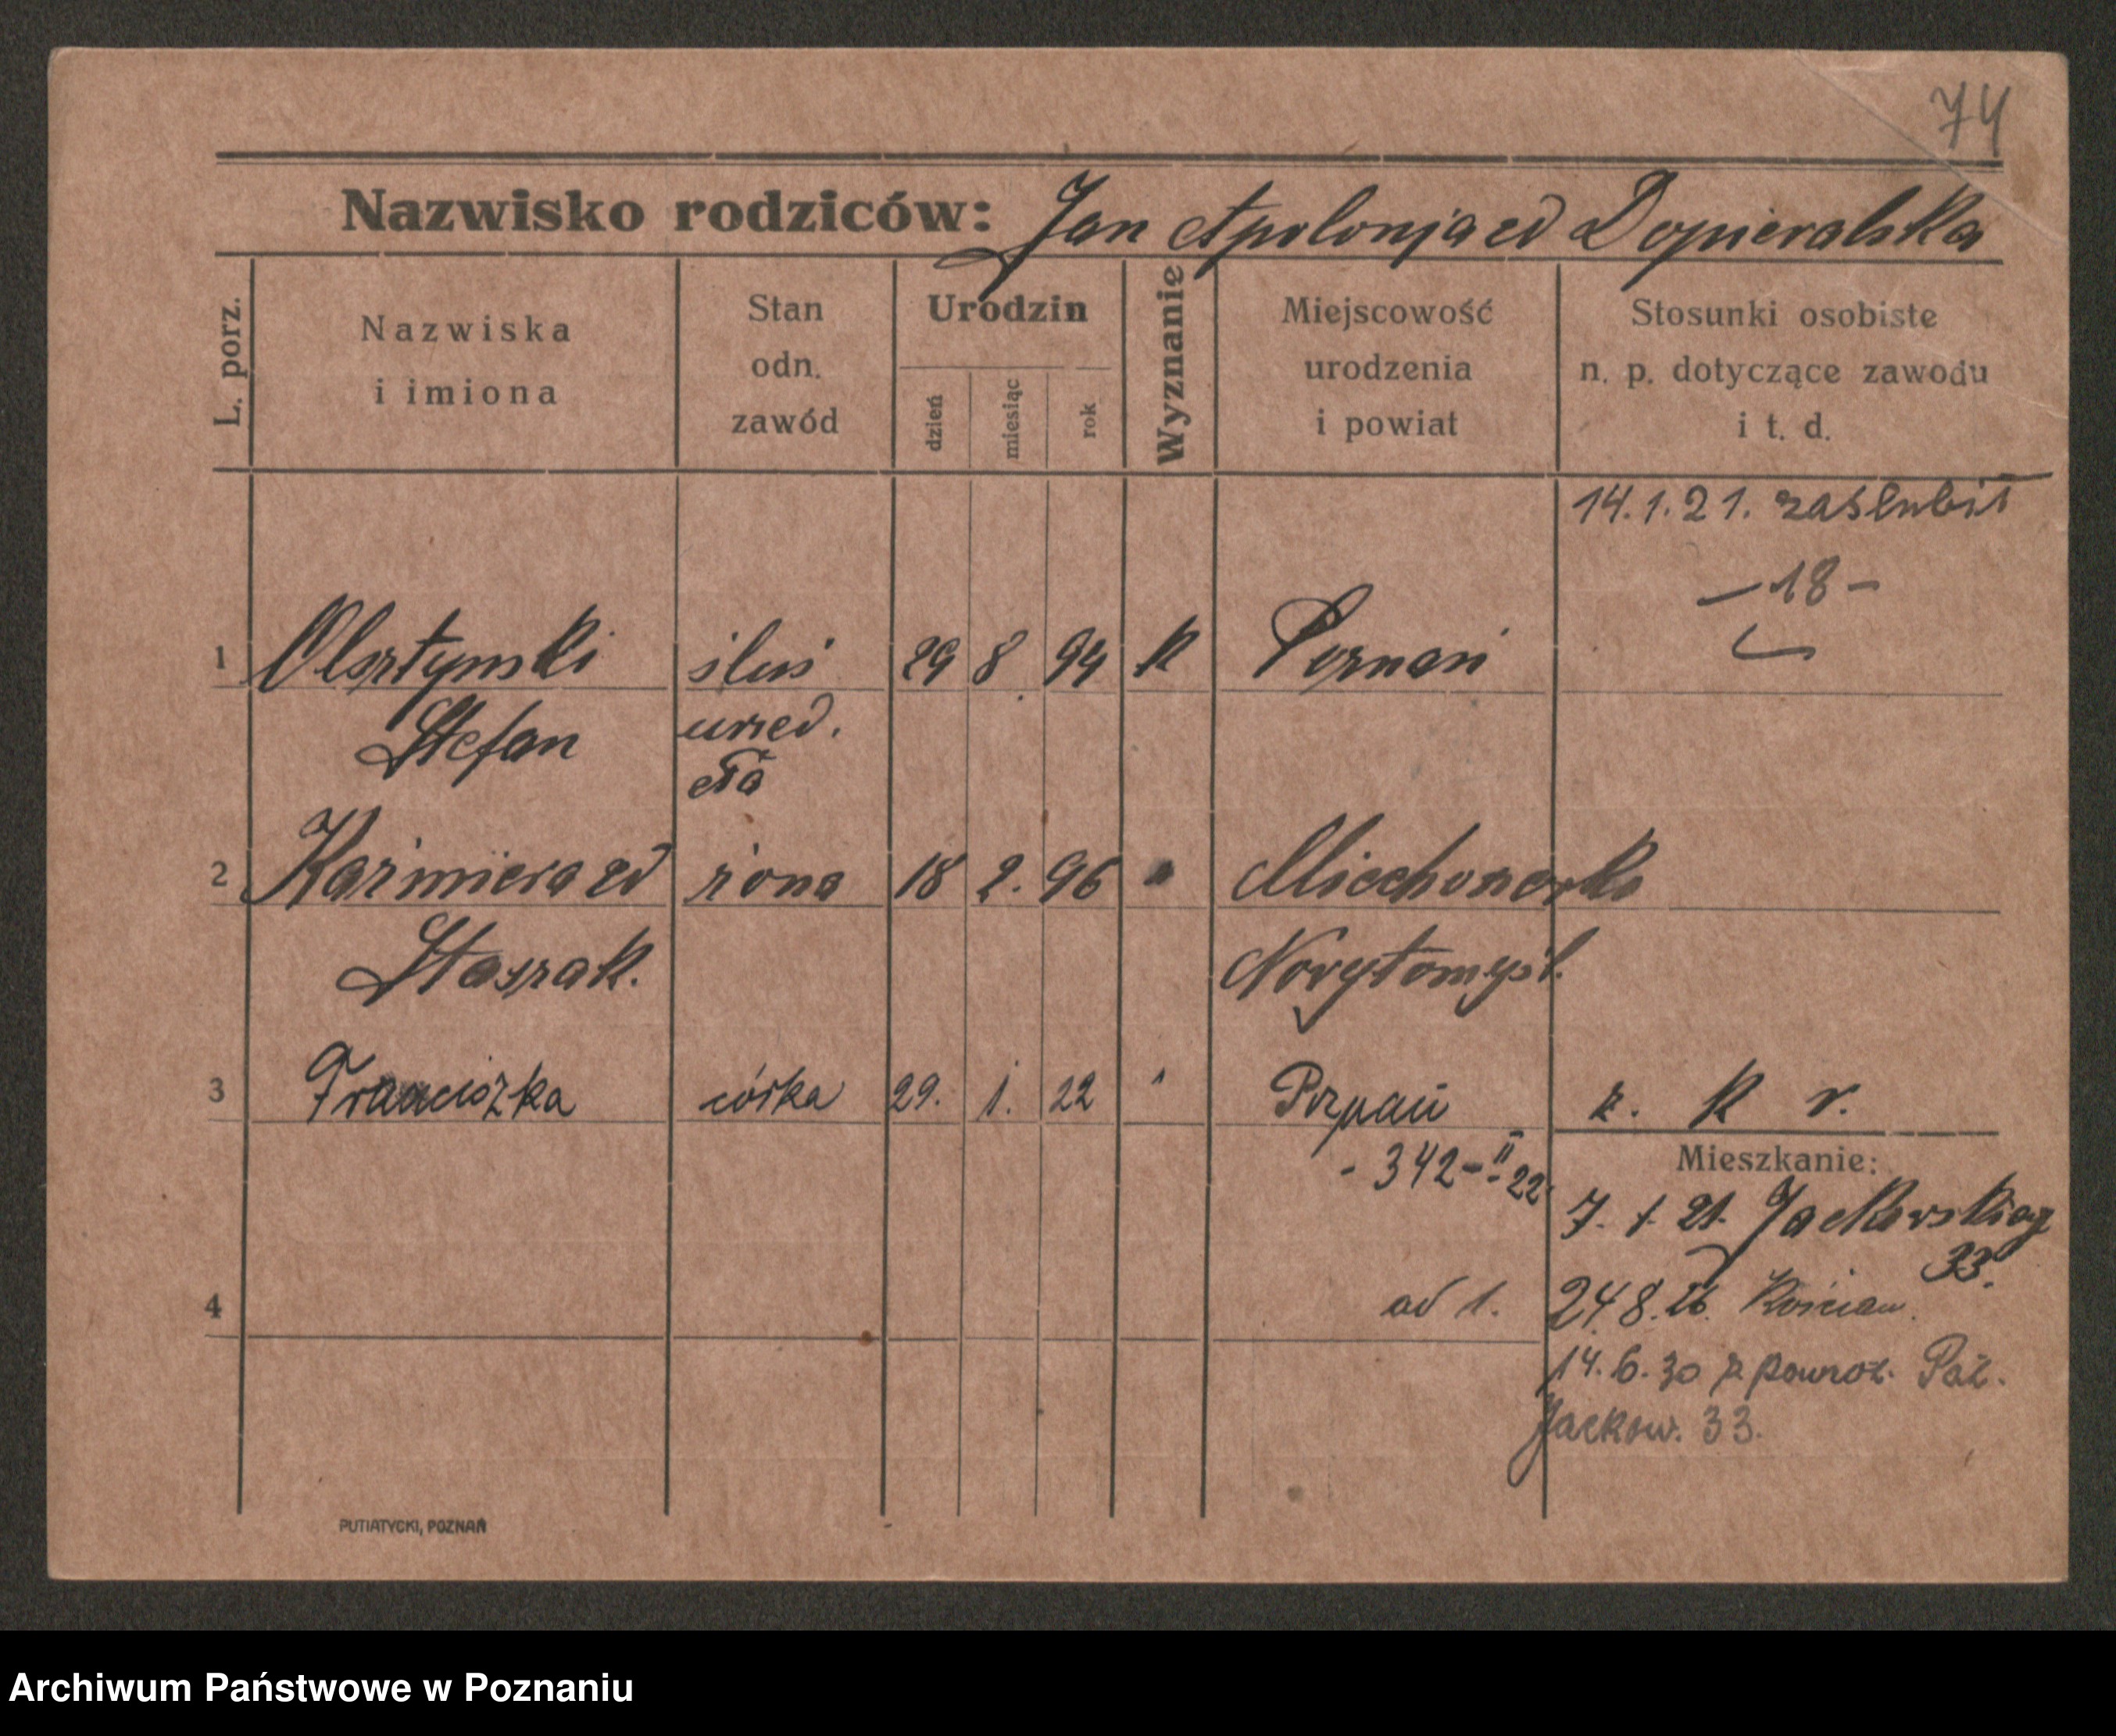 74
Nazwisko rodziców: Jan Apolonja zd Dopieralska
L. porz.
Nazwiska
i imiona
Stan
odn.
zawód
Urodzin
dzień
miesiąc
rok
Wyznanie
Miejscowość
urodzenia
i powiat
Stosunki osobiste
n. p. dotyczące zawodu
i t. d.
14.1.21. zaślubił
-18-
1 Olsztynski ślus 29 8 94 k Poznań
Stefan urzed.
2 Kazimiera zd żona 18 2. 96 " Miechonorka
Staszak. Nowytomyśl.
3 Franciszka córka 29. 1. 22 " Poznań z. k r.
- 342 - II 22
Mieszkanie:
7. 1. 21. Jackowskieg
33.
4 ad 1. 24 8. 26. Kościan.
14. 6. 30 z powrot.
Jackow. 33.
PUTIATYCKI, POZNAŃ
Archiwum Państwowe w Poznaniu